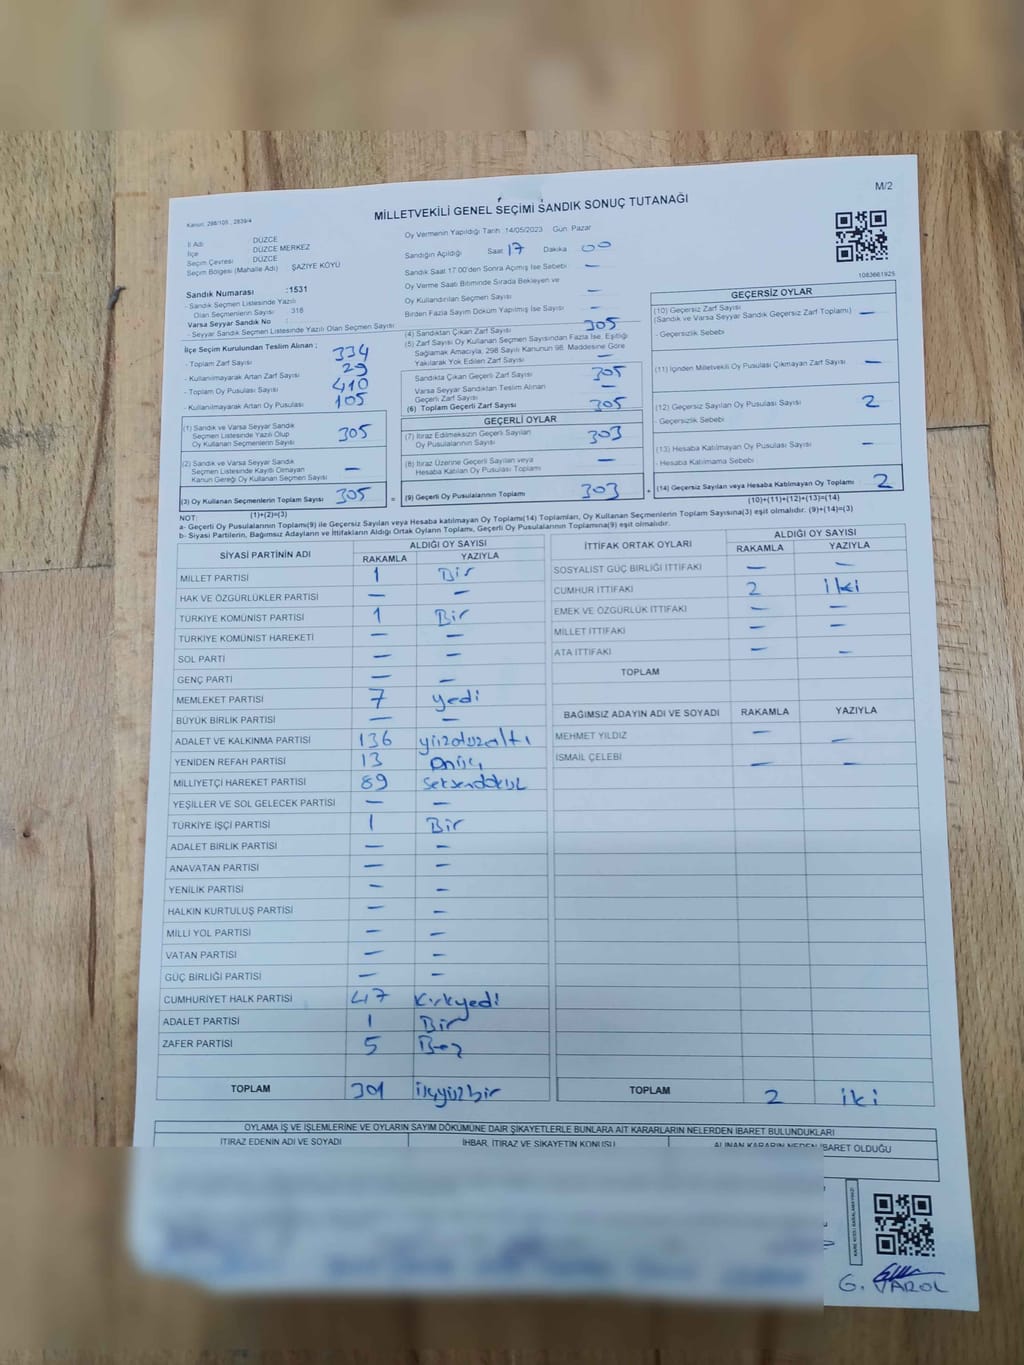 M/2
MİLLETVEKİLİ GENEL SEÇİMİ SANDIK SONUÇ TUTANAĞI
Kanun: 298/105 , 2839/4
İl Adı DÜZCE
İlçe DÜZCE MERKEZ
Seçim Çevresi : DÜZCE
Seçim Bölgesi (Mahalle Adı) : ŞAZİYE KÖYÜ
Sandık Numarası :1531
- Sandık Seçmen Listesinde Yazılı
Olan Seçmenlerin Sayısı: 318
Varsa Seyyar Sandık No :
- Seyyar Sandık Seçmen Listesinde Yazılı Olan Seçmen Sayısı
İlçe Seçim Kurulundan Teslim Alınan ;
- Toplam Zarf Sayısı 334
- Kullanılmayarak Artan Zarf Sayısı 29
- Toplam Oy Pusulası Sayısı 410
- Kullanılmayarak Artan Oy Pusulası 105
(1) Sandık ve Varsa Seyyar Sandık
Seçmen Listesinde Yazılı Olup
Oy Kullanan Seçmenlerin Sayısı 305
(2) Sandık ve Varsa Seyyar Sandık
Seçmen Listesinde Kayıtlı Olmayan
Kanun Gereği Oy Kullanan Seçmen Sayısı —
(3) Oy Kullanan Seçmenlerin Toplam Sayısı 305 =
(1)+(2)=(3)
Oy Vermenin Yapıldığı Tarih :14/05/2023 Gün: Pazar
Sandığın Açıldığı Saat 17 Dakika 00
Sandık Saat 17:00'den Sonra Açılmış İse Sebebi —
Oy Verme Saati Bitiminde Sırada Bekleyen ve
Oy Kullandırılan Seçmen Sayısı —
Birden Fazla Sayım Döküm Yapılmış İse Sayısı —
(4) Sandıktan Çıkan Zarf Sayısı 305
(5) Zarf Sayısı Oy Kullanan Seçmen Sayısından Fazla İse, Eşitliği
Sağlamak Amacıyla, 298 Sayılı Kanunun 98. Maddesine Göre
Yakılarak Yok Edilen Zarf Sayısı —
Sandıkta Çıkan Geçerli Zarf Sayısı 305
Varsa Seyyar Sandıktan Teslim Alınan
Geçerli Zarf Sayısı —
(6) Toplam Geçerli Zarf Sayısı 305
GEÇERLİ OYLAR
(7) İtiraz Edilmeksizin Geçerli Sayılan
Oy Pusulalarının Sayısı 303
(8) İtiraz Üzerine Geçerli Sayılan veya
Hesaba Katılan Oy Pusulası Toplamı —
(9) Geçerli Oy Pusulalarının Toplamı 303 +
1083661925
GEÇERSİZ OYLAR
(10) Geçersiz Zarf Sayısı
(Sandık ve Varsa Seyyar Sandık Geçersiz Zarf Toplamı) —
- Geçersizlik Sebebi
(11) İçinden Milletvekili Oy Pusulası Çıkmayan Zarf Sayısı —
(12) Geçersiz Sayılan Oy Pusulası Sayısı 2
- Geçersizlik Sebebi
(13) Hesaba Katılmayan Oy Pusulası Sayısı —
- Hesaba Katılmama Sebebi
(14) Geçersiz Sayılan veya Hesaba Katılmayan Oy Toplamı 2
(10)+(11)+(12)+(13)=(14)
NOT:
a- Geçerli Oy Pusulalarının Toplamı(9) ile Geçersiz Sayılan veya Hesaba katılmayan Oy Toplamı(14) Toplamları, Oy Kullanan Seçmenlerin Toplam Sayısına(3) eşit olmalıdır. (9)+(14)=(3)
b- Siyasi Partilerin, Bağımsız Adayların ve İttifakların Aldığı Ortak Oyların Toplamı, Geçerli Oy Pusulalarının Toplamına(9) eşit olmalıdır.
SİYASİ PARTİNİN ADI ALDIĞI OY SAYISI
RAKAMLA YAZIYLA
MİLLET PARTİSİ 1 Bir
HAK VE ÖZGÜRLÜKLER PARTİSİ — —
TÜRKİYE KOMÜNİST PARTİSİ 1 Bir
TÜRKİYE KOMÜNİST HAREKETİ — —
SOL PARTİ — —
GENÇ PARTİ — —
MEMLEKET PARTİSİ 7 yedi
BÜYÜK BİRLİK PARTİSİ — —
ADALET VE KALKINMA PARTİSİ 136 yüzotuzaltı
YENİDEN REFAH PARTİSİ 13 onüç
MİLLİYETÇİ HAREKET PARTİSİ 89 seksendokuz
YEŞİLLER VE SOL GELECEK PARTİSİ — —
TÜRKİYE İŞÇİ PARTİSİ 1 Bir
ADALET BİRLİK PARTİSİ — —
ANAVATAN PARTİSİ — —
YENİLİK PARTİSİ — —
HALKIN KURTULUŞ PARTİSİ — —
MİLLİ YOL PARTİSİ — —
VATAN PARTİSİ — —
GÜÇ BİRLİĞİ PARTİSİ — —
CUMHURİYET HALK PARTİSİ 47 Kırkyedi
ADALET PARTİSİ 1 Bir
ZAFER PARTİSİ 5 Beş
TOPLAM 301 üçyüzbir
İTTİFAK ORTAK OYLARI ALDIĞI OY SAYISI
RAKAMLA YAZIYLA
SOSYALİST GÜÇ BİRLİĞİ İTTİFAKI — —
CUMHUR İTTİFAKI 2 iki
EMEK VE ÖZGÜRLÜK İTTİFAKI — —
MİLLET İTTİFAKI — —
ATA İTTİFAKI — —
TOPLAM
BAĞIMSIZ ADAYIN ADI VE SOYADI RAKAMLA YAZIYLA
MEHMET YILDIZ — —
İSMAİL ÇELEBİ — —
TOPLAM 2 iki
OYLAMA İŞ VE İŞLEMLERİNE VE OYLARIN SAYIM DÖKÜMÜNE DAİR ŞİKAYETLERLE BUNLARA AİT KARARLARIN NELERDEN İBARET BULUNDUKLARI
İTİRAZ EDENİN ADI VE SOYADI İHBAR, İTİRAZ VE ŞİKAYETİN KONUSU ALINAN KARARIN NEDEN İBARET OLDUĞU
G. VAROL